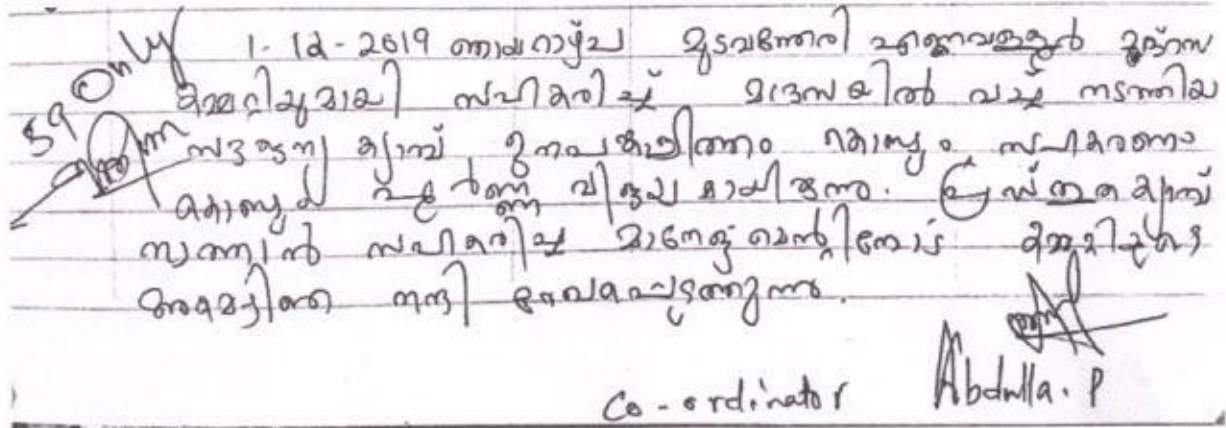 1-12-2019 ഞായറാഴ്ച മുടവന്തേരി എണവള്ളൂർ മദ്രസ
കമ്മറ്റിയുമായി സഹകരിച്ച് മദ്രസയിൽ വച്ച് നടത്തിയ
59 only
സൗജന്യ ക്യാമ്പ് ജനപങ്കാളിത്തം കൊണ്ടും സഹകരണം
കൊണ്ടും പൂർണ്ണ വിജയമായിരുന്നു. പ്രസ്തുത ക്യാമ്പ്
നടത്താൻ സഹകരിച്ച മാനേജ്മെന്റിനോട് കമ്മിറ്റിയുടെ
അകമഴിഞ്ഞ നന്ദി രേഖപ്പെടുത്തുന്നു.
Co-ordinator Abdulla. P